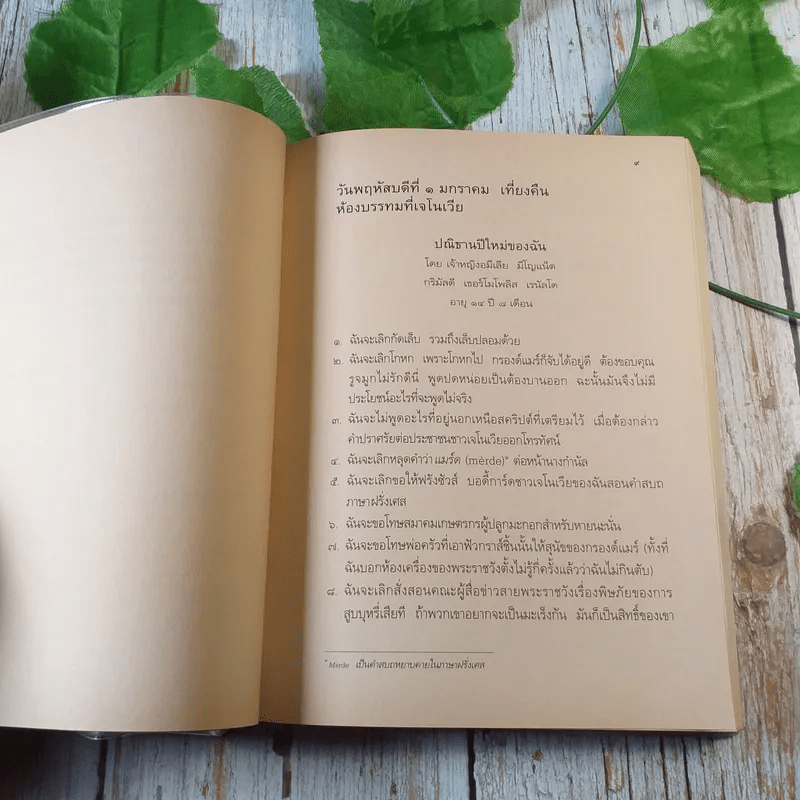 ๙
วันพฤหัสบดีที่ ๑ มกราคม เที่ยงคืน
ห้องบรรทมที่เจโนเวีย
ปณิธานปีใหม่ของฉัน
โดย เจ้าหญิงอมีเลีย มิโญแน็ต
กริมัลดี เธอร์โมโพลิส เรนัลโด
อายุ ๑๔ ปี ๘ เดือน
๑. ฉันจะเลิกกัดเล็บ รวมถึงเล็บปลอมด้วย
๒. ฉันจะเลิกโกหก เพราะโกหกไป กรองด์แมร์ก็จับได้อยู่ดี ต้องขอบคุณ
รูจมูกไม่รักดีนี่ พูดปดหน่อยเป็นต้องบานออก ฉะนั้นมันจึงไม่มี
ประโยชน์อะไรที่จะพูดไม่จริง
๓. ฉันจะไม่พูดอะไรที่อยู่นอกเหนือสคริปต์ที่เตรียมไว้ เมื่อต้องกล่าว
คำปราศรัยต่อประชาชนชาวเจโนเวียออกโทรทัศน์
๔. ฉันจะเลิกหลุดคำว่า แมร์ด (mèrde)* ต่อหน้านางกำนัล
๕. ฉันจะเลิกขอให้ฟรังซัวส์ บอดี้การ์ดชาวเจโนเวียของฉันสอนคำสบถ
ภาษาฝรั่งเศส
๖. ฉันจะขอโทษสมาคมเกษตรกรผู้ปลูกมะกอกสำหรับหายนะนั่น
๗. ฉันจะขอโทษพ่อครัวที่เอาฟัวกราส์ชิ้นนั้นให้สุนัขของกรองด์แมร์ (ทั้งที่
ฉันบอกห้องเครื่องของพระราชวังตั้งไม่รู้กี่ครั้งแล้วว่าฉันไม่กินตับ)
๘. ฉันจะเลิกสั่งสอนคณะผู้สื่อข่าวสายพระราชวังเรื่องพิษภัยของการ
สูบบุหรี่เสียที ถ้าพวกเขาอยากจะเป็นมะเร็งกัน มันก็เป็นสิทธิ์ของเขา
* Mèrde เป็นคำสบถหยาบคายในภาษาฝรั่งเศส